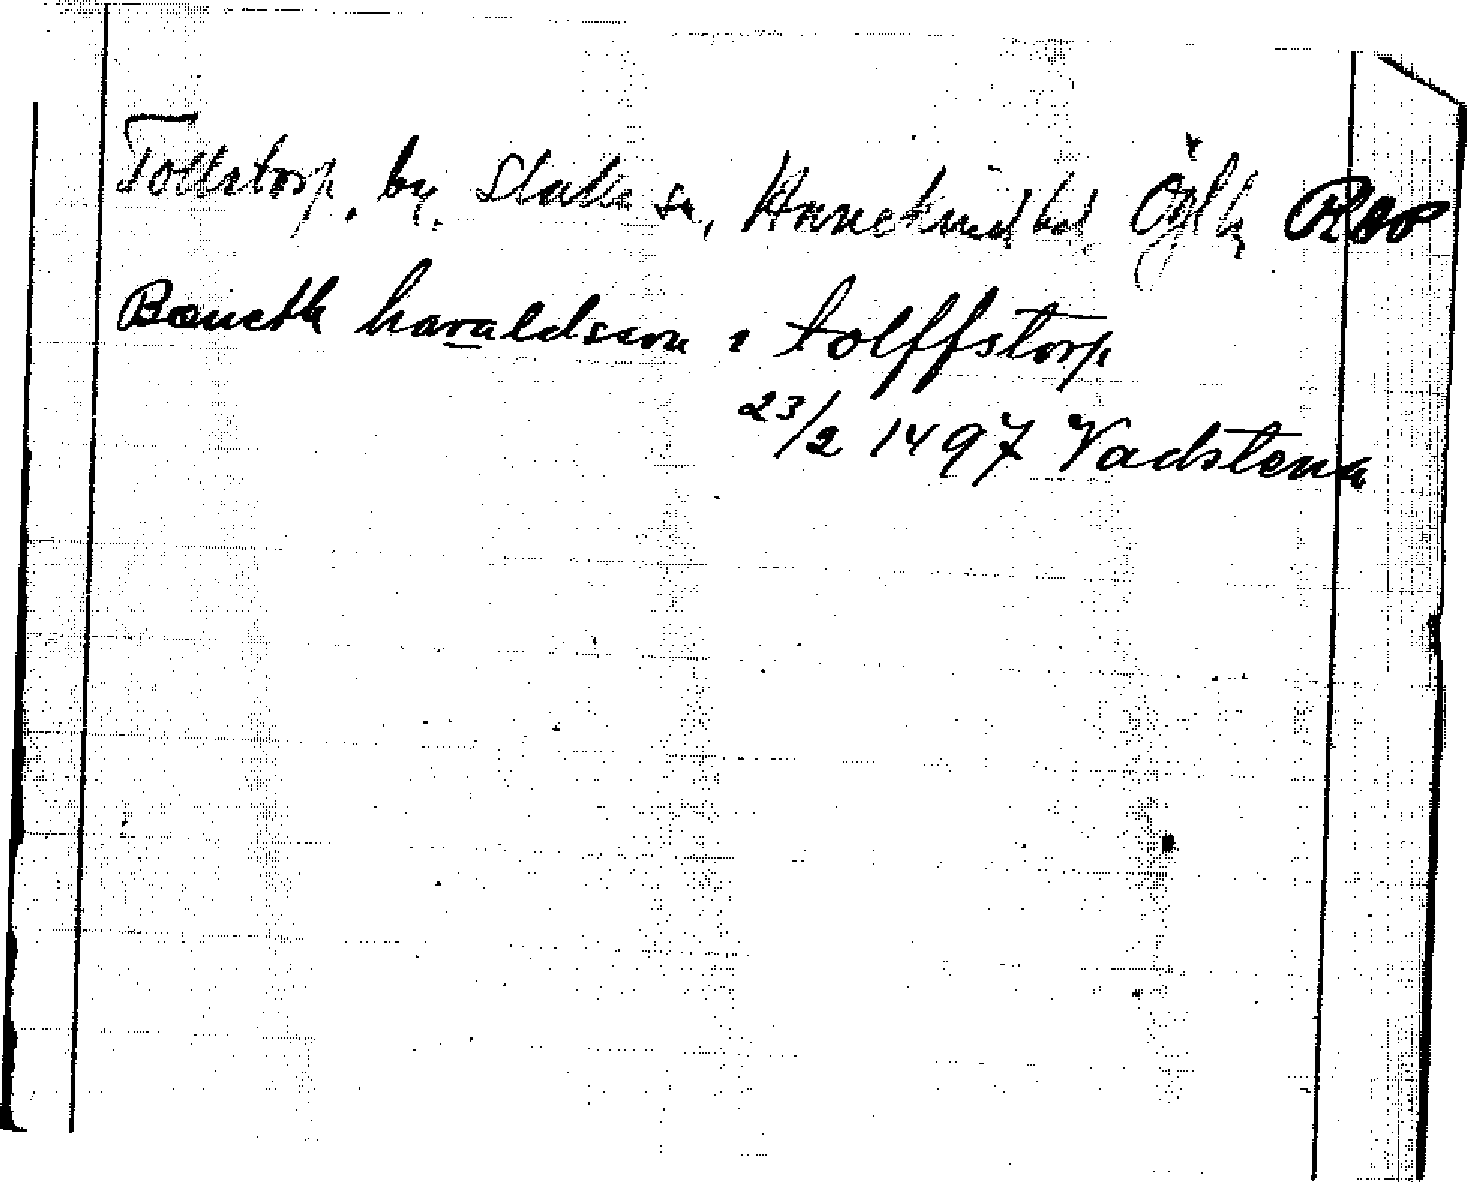 Tollstorp, by, Slaka sn, Hanekinds hd. Ögtl. RAP
Bæncth haraldsson i tolffstorp
23/2 1497 Vadstena